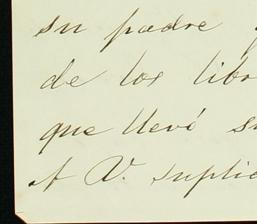 su padre
de los libro
que llevó su
A V. suplic